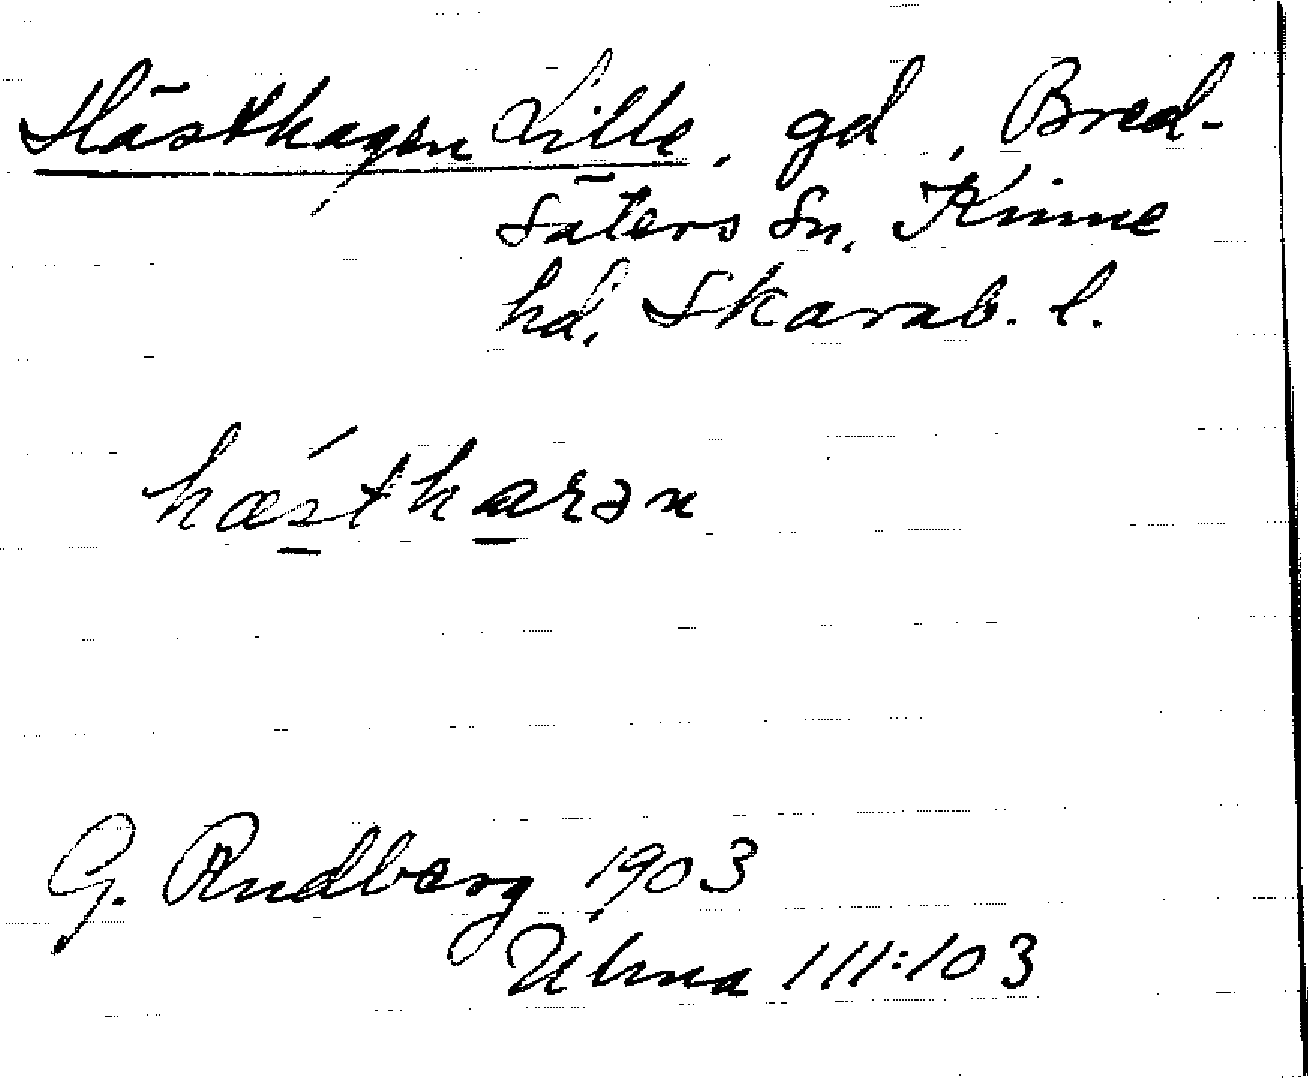 Hästhagen Lille, gd, Bred-
säters sn, Kinne
hd, Skarab. l.
hǽsthaꞬən
G. Rudberg 1903
Ulma 111:103